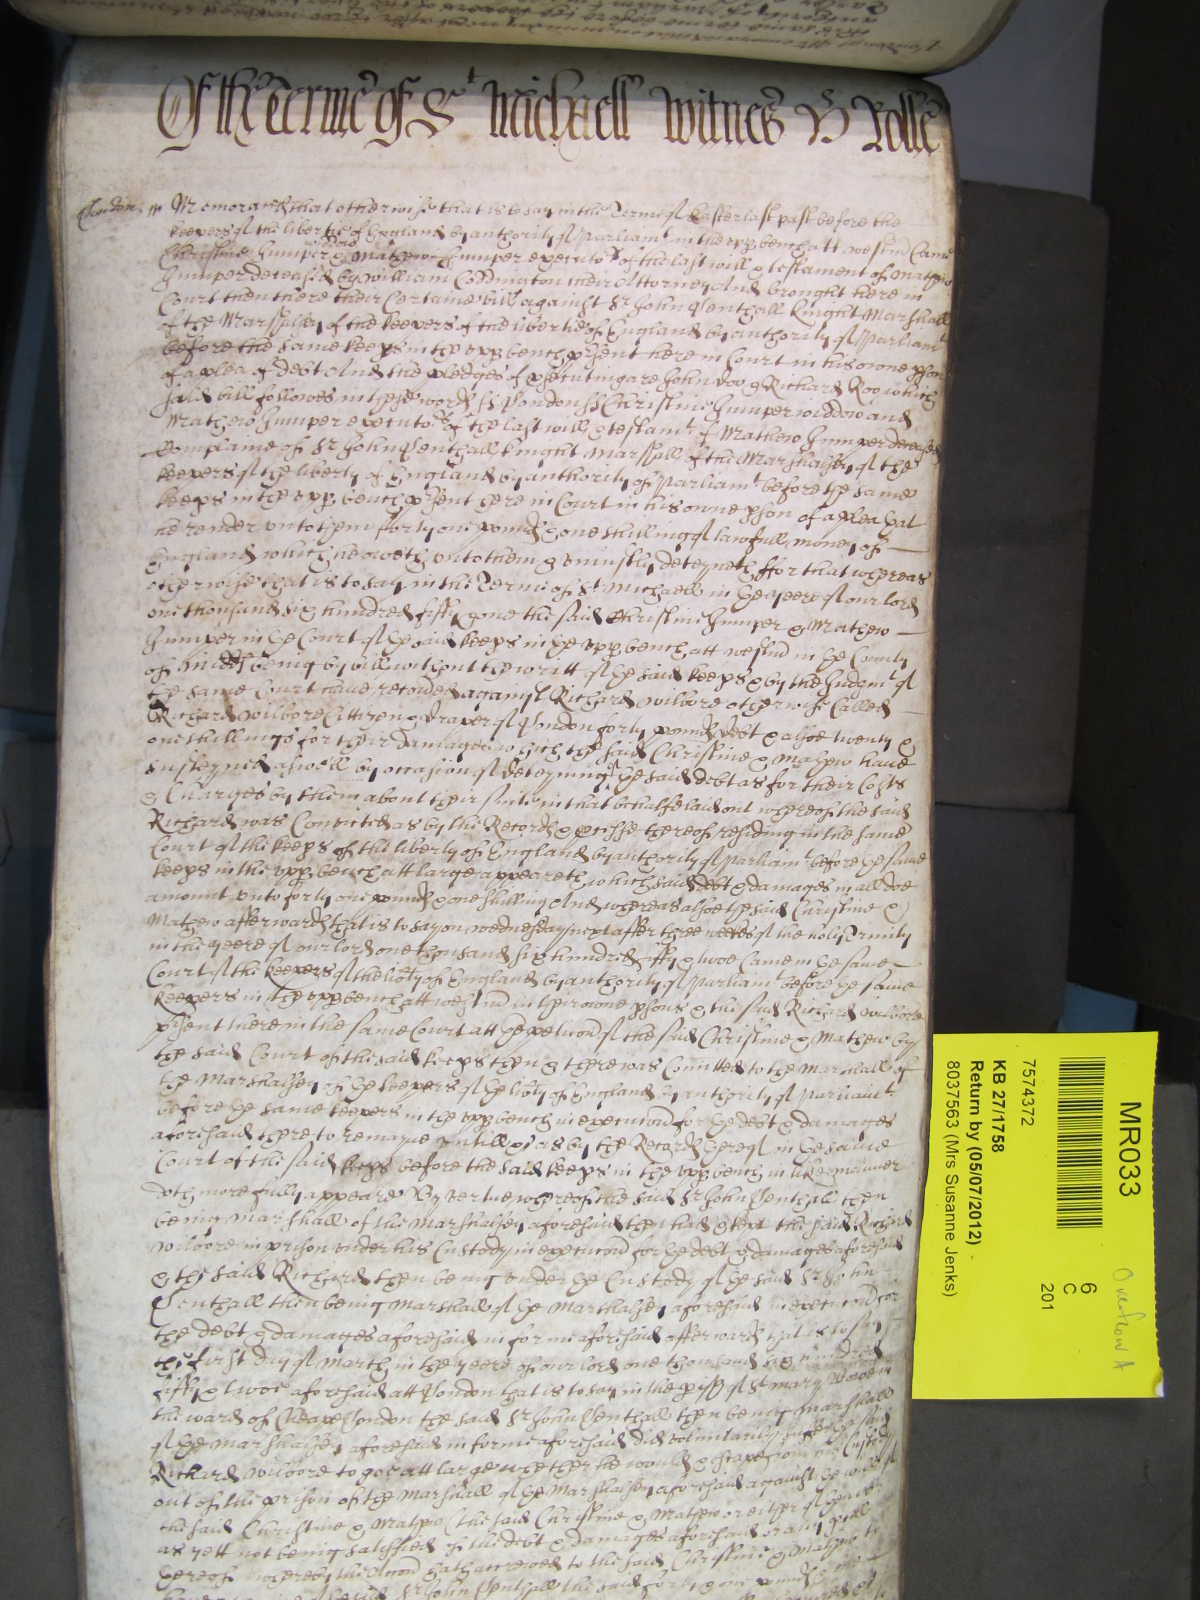 Of the Terme of St Michaell Witnes H Rolle
London ss Memorandũ that otherwise that is to say in the Terme of Easter last past before the
keepers of the libertie of England by authority of Parliamt in the upp bench att Westmr Came
Christine Jumper widdow & Mathew Jumper executors of the last will & testament of Mathew
Jumper deceased by William Coddington their Attorney And brought here in
Court then there their Certaine bill against Sr John Lenthall Knight Marshall
of the Marshalsey of the keepers of the libertie of England by authority of Parliamt
before the same keeps in the upp bench prsent here in Court in his owne pson
of a plea of debt And the pledges of psecuting are John Doo & Richard Roo which
said bill followes in these words ss London ss Christine Jumper widdow and
Mathew Jumper executors of the last will & testamt of Mathew Jumper deceased
Complaine of Sr John Lenthall Knight Marshall of the Marshalsey of the
keepers of the liberty of England by authority of Parliamt before the same
keeps in the upp bench prsent here in Court in his owne pson of a plea that
he render unto them forty one pounds & one shilling of lawfull money of
England which he oweth unto them & uniustly deteyneth ffor that whereas
otherwise that is to say in the Terme of St Michaell in the yeere of our lord
one thousand six hundred fifty & one the said Christine Jumper & Mathew
Jumper in the Court of the said keeps in the upp bench att Westmr in the County
of Midds being by bill without the writt of the said keeps & by the Judgmt of
the same Court have recoued against Richard Wilbore otherwise Called
Richard Wilbore Cittizen & Draper of London forty pounds debt & alsoe twenty &
one shillings for their damages which the said Christine & Mathew have
susteyned aswell by occasion of deteyning of the said debt as for their Costs
& Charges by them about their suite in that behalfe laid out whereof the said
Richard was Convicted as by the Record & processe thereof residing in the same
Court of the keeps of the liberty of England by authority of Parliamt before the same
keeps in the upp bench att large appeareth which said debt & damages in all doe
amount unto forty one pounds & one shilling And whereas alsoe the said Christine &
Mathew afterwards that is to say on Wednesday next after three weekes of the holy Trinity
in the yeere of our lord one thousand six hundred fifty & twoe Came in the same
Court of the keepers of the libty of England by authority of Parliamt before the same
keepers in the upp bench att Westmr in their owne psons & the said Richard Wilbore
prsent there in the same Court att the peticon of the said Christine & Mathew by
the said Court of the said keeps then & there was Comitted to the Marshall of
the Marshalsey of the keepers of the libty of England by authority of Parliamt
before the same keepers in the upp bench in execucon for the debt & damages
aforesaid there to remayne untill &c as by the Record thereof in the same
Court of the said keeps before the said keeps in the upp bench in like manner
doth more fully appeare By vertue whereof the said Sr John Lenthall then
being Marshall of the Marshalsey aforesaid then had & kept the said Richard
Wilbore in prison under his Custody in execucon for the debt & damages aforesaid
& the said Richard then being under the Custody of the said Sr John
Lenthall then being Marshall of the Marshalsey aforesaid in execucon for
the debt & damages aforesaid in forme aforesaid afterwards that is to say
the first day of March in the yeere of our lord one thousand six hundred
fifty & twoe aforesaid att London that is to say in the pish of St Mary Bowe in
the ward of Cheape London the said Sr John Lenthall then being Marshall
of the Marshalsey aforesaid in forme aforesaid did voluntarily suffer the said
Richard Wilbore to goe att large whether he would & escape from his Custody
out of the prison of the Marshall of the Marshalsey aforesaid against the will of
the said Christine & Mathew the said Christine & Mathew or either of them
as yett not being satisfied of the debt & damages aforesaid or any pcell
thereof whereby the Accon hath accrewed to the said Christine & Mathew to
the said Sr John Lenthall the said forty & one pounds
MR033
6
C
201
Overflow A
7574372
KB 27/1758
Return by (05/07/2012)
8037563 (Mrs Susanne Jenks)